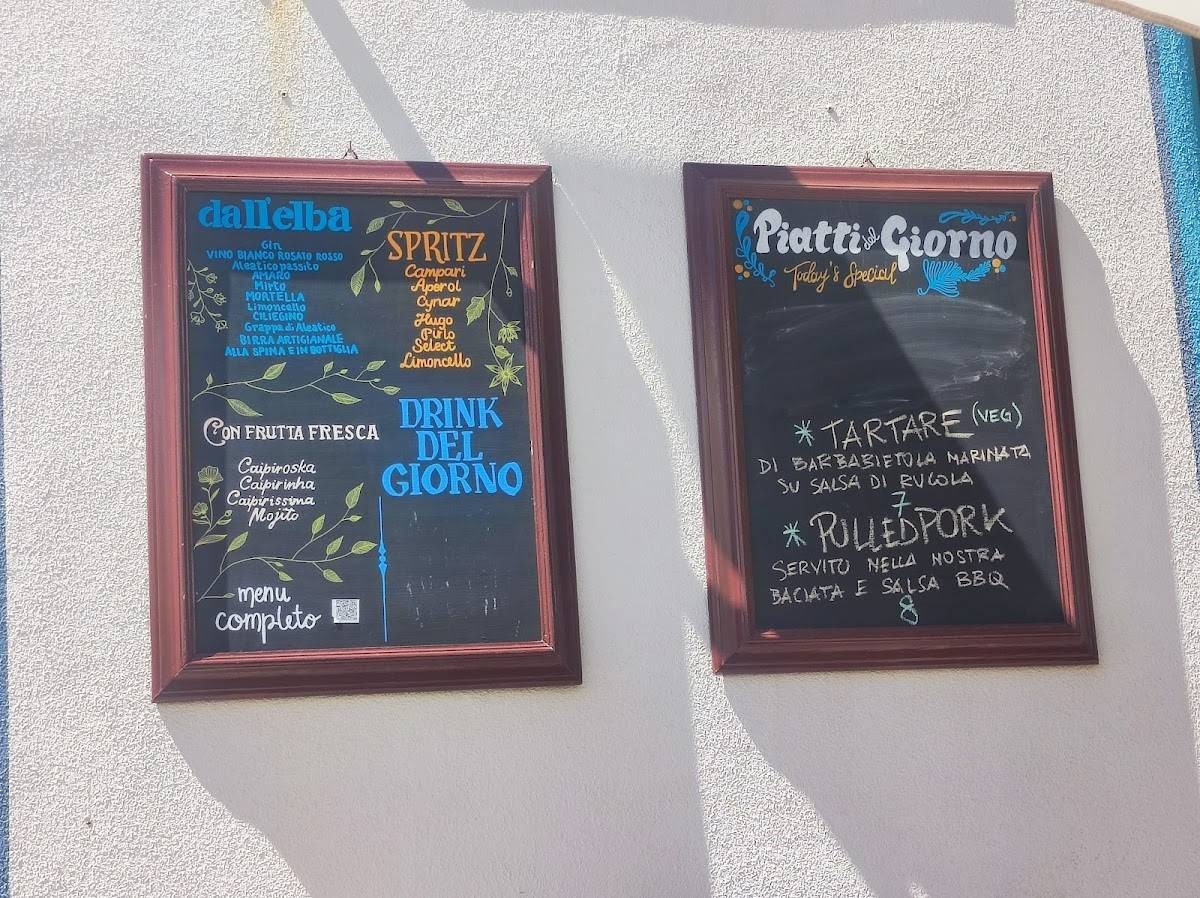 dall'elba
Gin
VINO BIANCO ROSATO ROSSO
Aleatico passito
AMARO
Mirto
MORTELLA
Limoncello
CILIEGINO
Grappa di Aleatico
BIRRA ARTIGIANALE
ALLA SPINA E IN BOTTIGLIA
SPRITZ
Campari
Aperol
Cynar
Hugo
Pirlo
Select
Limoncello
CON FRUTTA FRESCA
Caipiroska
Caipirinha
Caipirissima
Mojito
DRINK
DEL
GIORNO
menu
completo
Piatti del Giorno
Today's Special
* TARTARE (VEG)
DI BARBABIETOLA MARINATA
SU SALSA DI RUCOLA
7
* PULLED PORK
SERVITO NELLA NOSTRA
BACIATA E SALSA BBQ
8